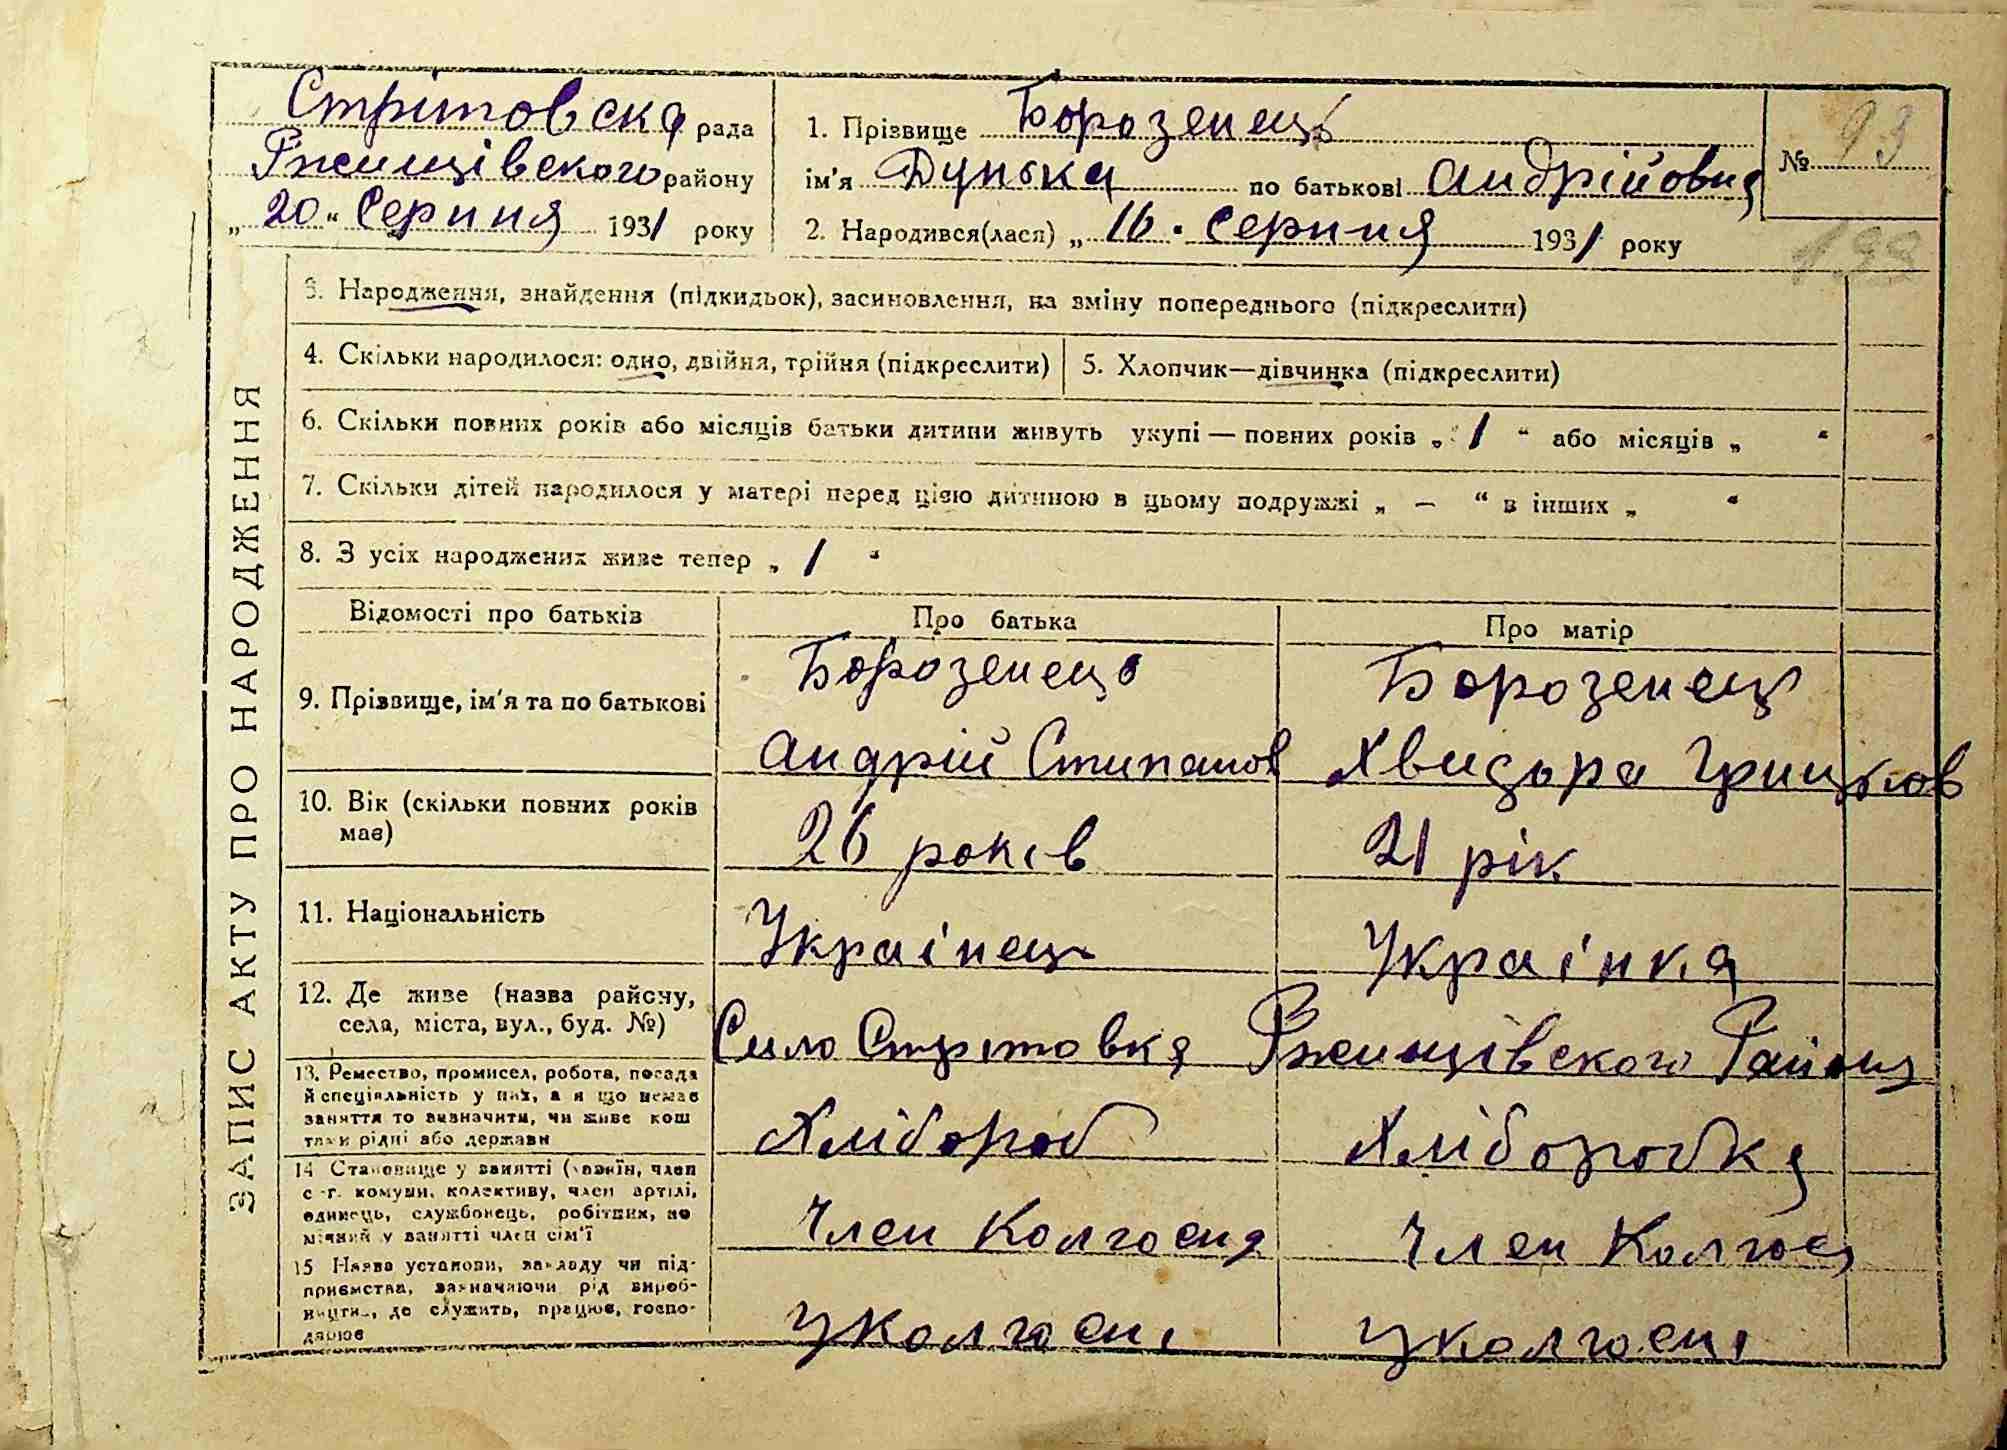 Стритовска рада
Ржищівского району
„ 20 “ Серпня 1931 року
1. Прізвище Борозенець
ім'я Дунька по батькові Андрійовня
2. Народився(лася) „ 16 . Серпня 1931 року
№ 93
199
ЗАПИС АКТУ ПРО НАРОДЖЕННЯ
3. Народження, знайдення (підкидьок), засиновлення, на зміну попереднього (підкреслити)
4. Скільки народилося: одно, двійня, трійня (підкреслити)
5. Хлопчик—дівчинка (підкреслити)
6. Скільки повних років або місяців батьки дитини живуть укупі — повних років „ 1 “ або місяців „ “
7. Скільки дітей народилося у матері перед цією дитиною в цьому подружжі „ — “ в інших „ “
8. З усіх народжених живе тепер „ 1 “
Відомості про батьків
Про батька
Про матір
9. Прізвище, ім'я та по батькові
Борозенець
Андрій Стипанов
Борозенец
Хвидора Грицков
10. Вік (скільки повних років
має)
26 років
21 рік
11. Національність
Украінец
Украінка
12. Де живе (назва району,
села, міста, вул., буд. №)
Село Стритовка Ржищівского Району
13. Ремество, промисел, робота, посада
й спеціяльність у них, а я що немає
заняття то визначити, чи живе кош
тами рідні або держави
Хлібороб
Хліборобка
14 Становище у занятті (хазяїн, член
с.-г. комуни, колективу, член артілі,
одинець, службовець, робітник, по
мічний у занятті член сім'ї
Член Колгоспа
Член Колгос
15 Назва установи, закладу чи під-
приємства, зазначаючи рід вироб-
ництва, де служить, працює, госпо-
дарює
уколгоспі
уколгоспі